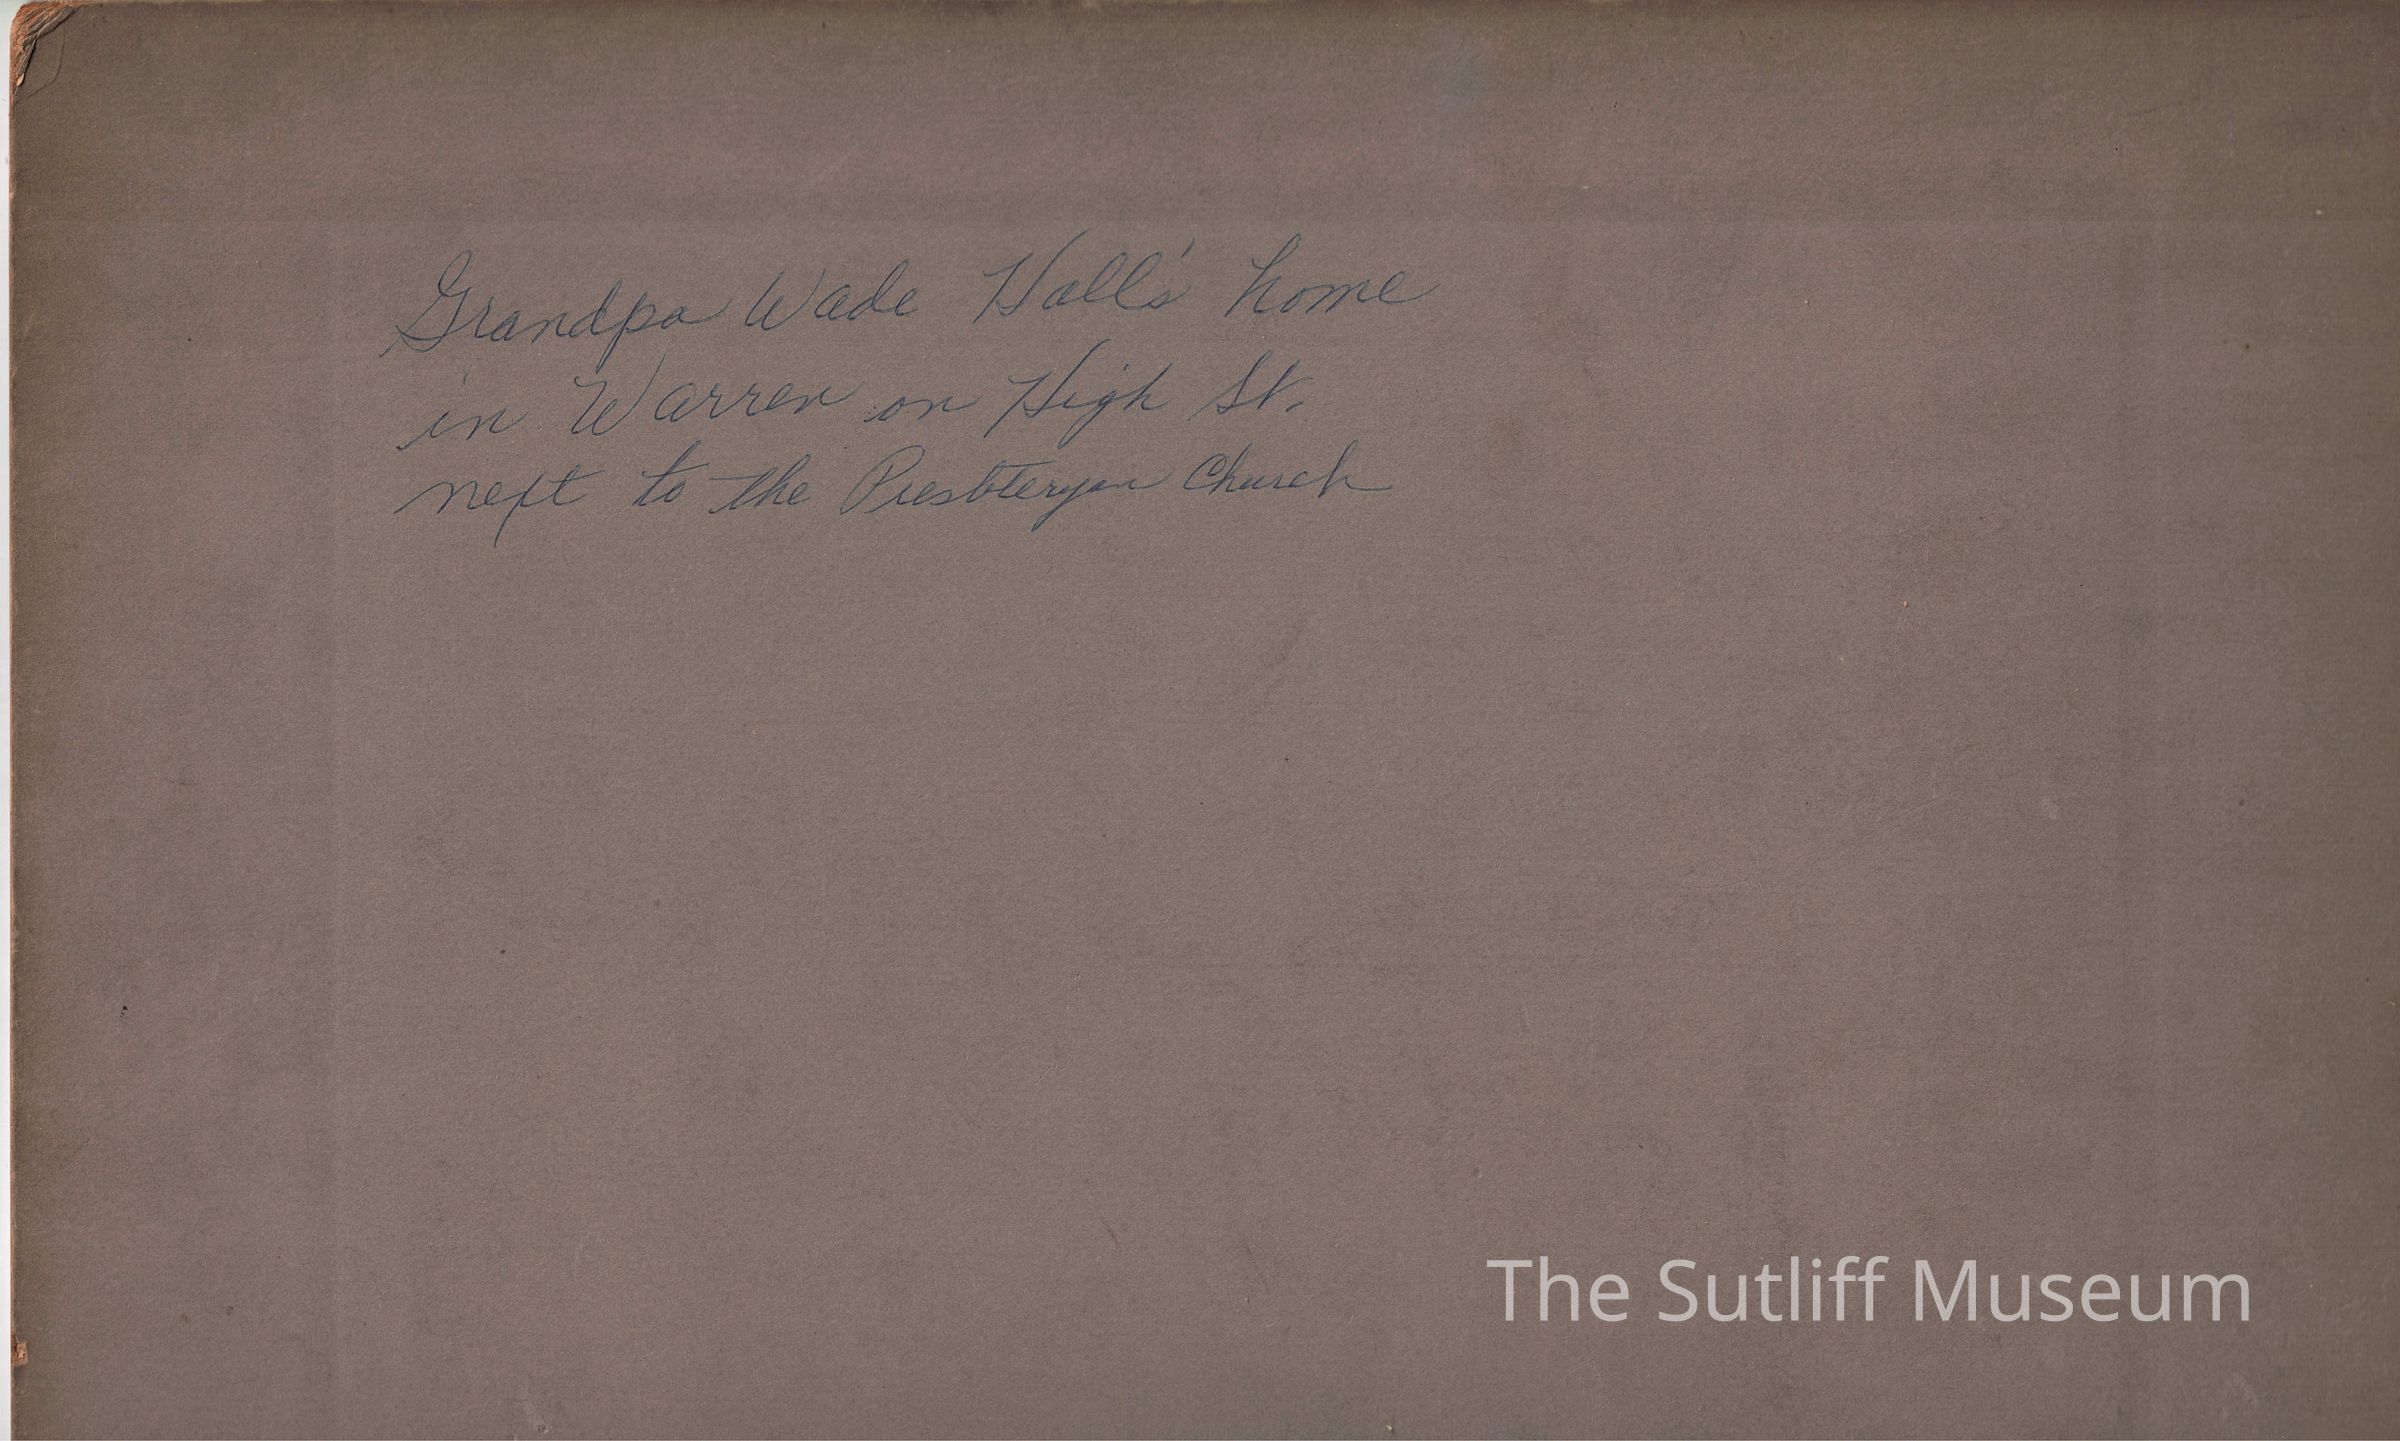 Grandpa Wade Hall's home
in Warren on High St.
next to the Presbteryan Church
The Sutliff Museum